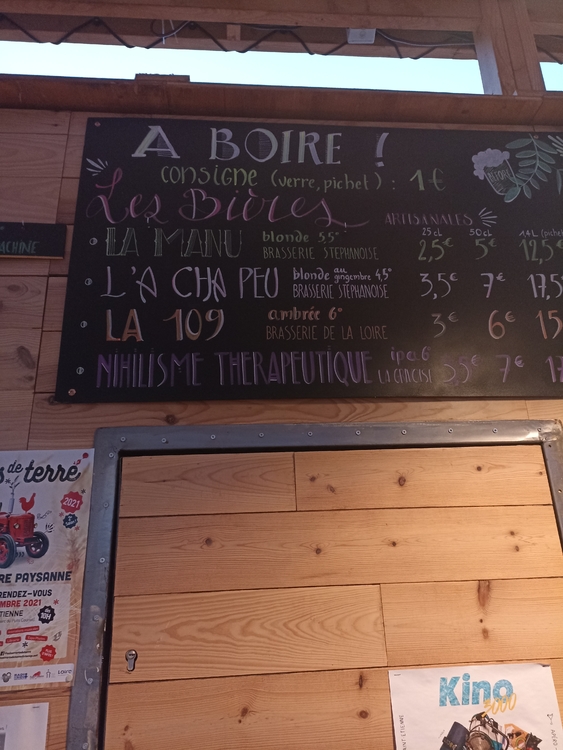 A BOIRE !
consigne (verre, pichet) : 1€
Les Bières ARTISANALES
25 cl 50 cl 1,4 L (pichet
LA MANU blonde 5.5° BRASSERIE STEPHANOISE 2,5€ 5€ 12,5€
L'A CHA PEU blonde au gingembre 4,5° BRASSERIE STÉPHANOISE 3,5€ 7€ 17,5
LA 109 ambrée 6° BRASSERIE DE LA LOIRE 3€ 6€ 15
NIHILISME THERAPEUTIQUE ipa 6 5€ 7€ 17
ACHINE
de terre
2021
RE PAYSANNE
RENDEZ-VOUS
MBRE 2021
TIENNE
Kino
3000